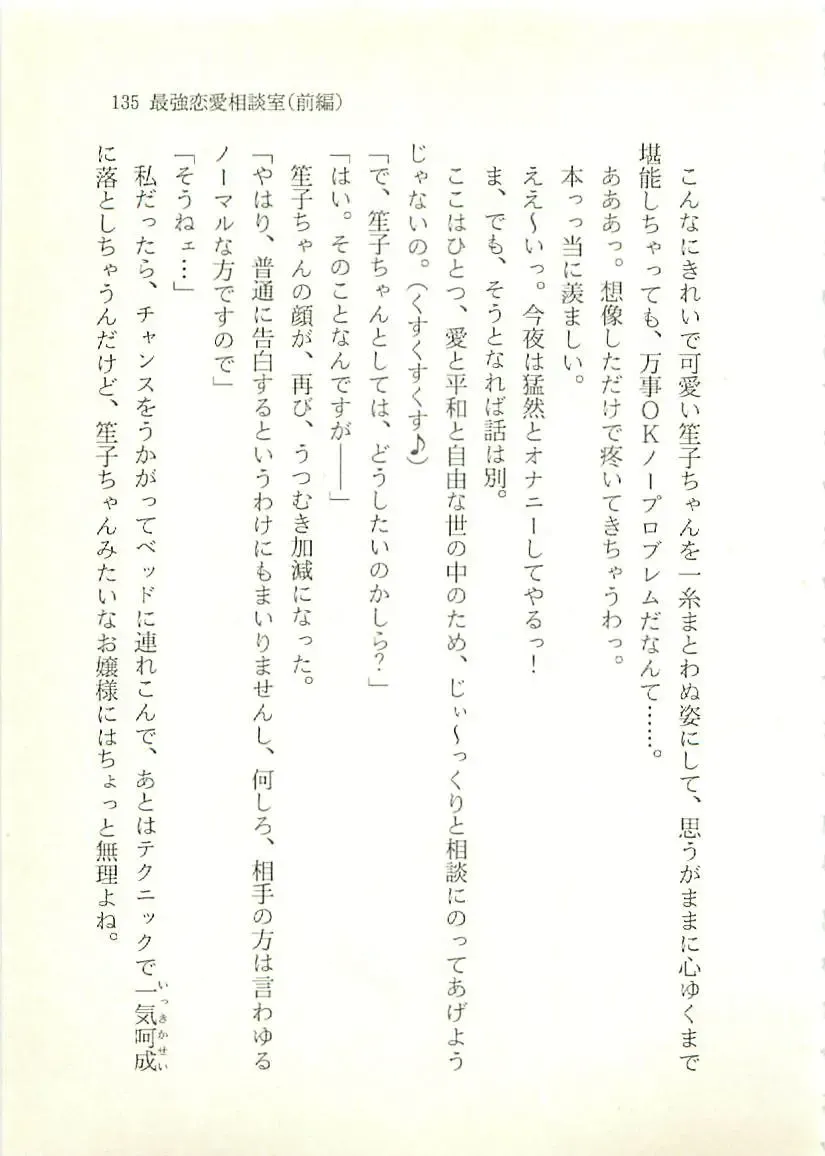 135 最強恋愛相談室(前編)
こんなにきれいで可愛い笙子ちゃんを一糸まとわぬ姿にして、思うがままに心ゆくまで
堪能しちゃっても、万事OKノープロブレムだなんて……。
あああっ。想像しただけで疼いてきちゃうわっ。
本っっ当に羨ましい。
ええ〜いっ。今夜は猛然とオナニーしてやるっ!
ま、でも、そうとなれば話は別。
ここはひとつ、愛と平和と自由な世の中のため、じぃ〜っくりと相談にのってあげよう
じゃないの。(くすくすくす♪)
「で、笙子ちゃんとしては、どうしたいのかしら?」
「はい。そのことなんですが――」
笙子ちゃんの顔が、再び、うつむき加減になった。
「やはり、普通に告白するというわけにもまいりませんし、何しろ、相手の方は言わゆる
ノーマルな方ですので」
「そうねェ…」
私だったら、チャンスをうかがってベッドに連れこんで、あとはテクニックで一気呵成いっきかせい
に落としちゃうんだけど、笙子ちゃんみたいなお嬢様にはちょっと無理よね。